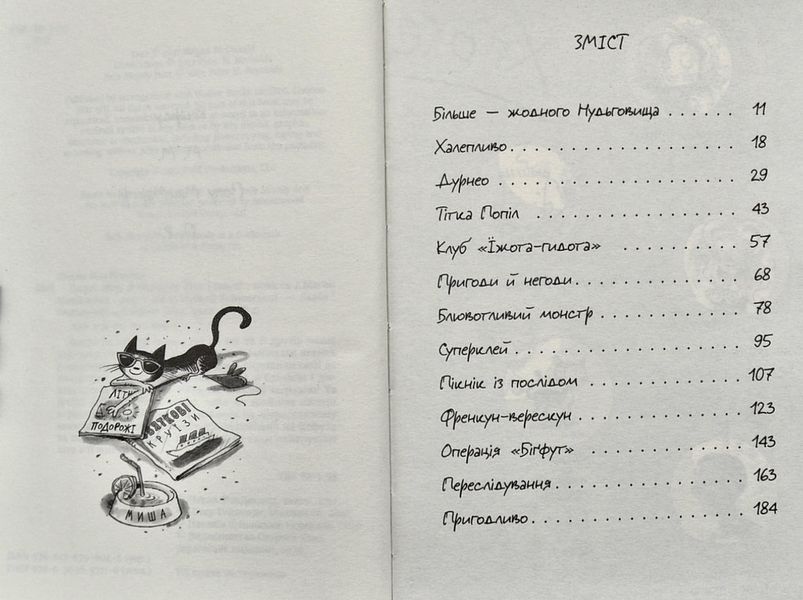 ЛІТНІ
ПОДОРОЖІ
КОТКОВІ
КРУЇЗИ
МИША
ЗМІСТ
Більше — жодного Нудьговища . . . . . . 11
Халепливо . . . . . . . . . . . . . . . . . . 18
Дурнео . . . . . . . . . . . . . . . . . . . 29
Тітка Попіл . . . . . . . . . . . . . . . . 43
Клуб «Їжота-гидота» . . . . . . . . . 57
Пригоди й негоди . . . . . . . . . . . . . 68
Блювотливий монстр . . . . . . . . . . . 78
Суперклей . . . . . . . . . . . . . . . . . 95
Пікнік із послідом . . . . . . . . . . . . 107
Френкун-верескун . . . . . . . . . . . . . 123
Операція «Біґфут» . . . . . . . . . . . . 143
Переслідування . . . . . . . . . . . . . . . 163
Пригодливо . . . . . . . . . . . . . . . . . 184